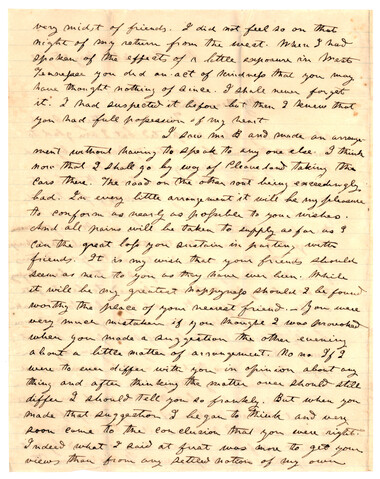 very midst of friends. I did not feel so on that
night of my return from the west. When I had
spoken of the effects of a little exposure in West
Tennessee you did an act of kindness that you may
have thought nothing of since. I shall never forget
it. I had suspected it before but then I knew that
you had full possession of my heart
I saw Mr B and made an arrange-
ment without having to speak to any one else. I think
now that I shall go by way of Cleaveland taking the
Cars there. The road on the other rout being exceedingly
bad. In every little arrangement it will be my pleasure
to conform as nearly as possible to your wishes.
And all pains will be taken to supply as far as I
can the great loss you sustain in parting with
friends. It is my wish that your friends should
seem as near to you as they have ever been. While
it will be my greatest happyness should I be found
worthy the place of your nearest friend. — You were
very much mistaken if you thought I was provoked
when you made a suggestion the other evening
about a little matter of arrangement. No no If I
were to ever differ with you in opinion about any
thing and after thinking the matter over should still
differ I should tell you so frankly. But when you
made that suggestion I began to think and very
soon came to the conclusion that you were right.
Indeed what I said at first was more to get your
views than from any settled notion of my own